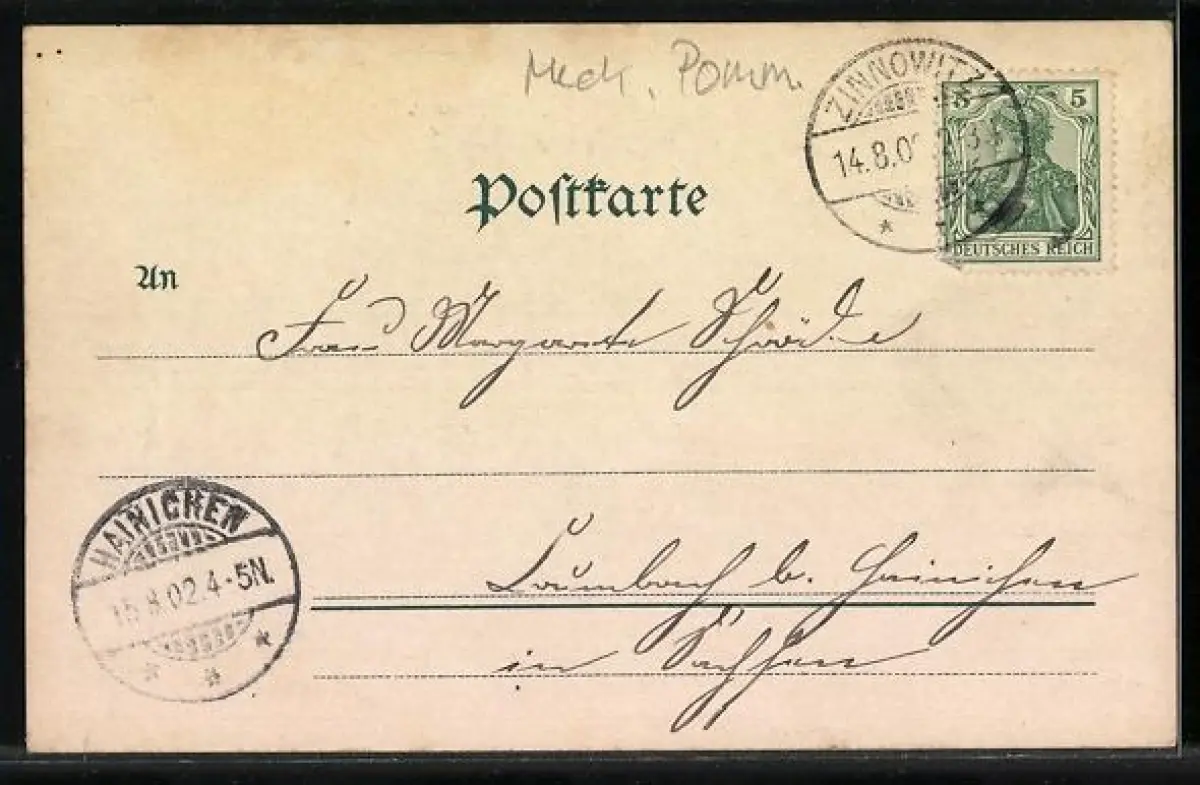 Meck. Pomm.
ZINNOWITZ
14.8.02
5 5
DEUTSCHES REICH
Postkarte
An
Frau Margarete
HAINICHEN
15.8.02.4-5N.
b. Hainichen
in Sachsen